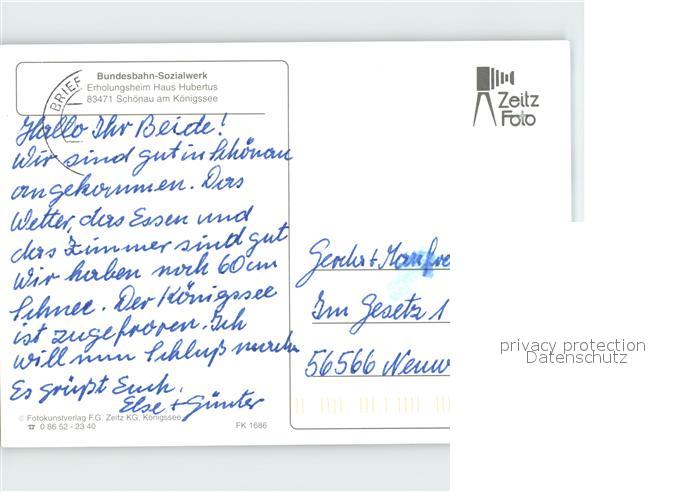 Bundesbahn-Sozialwerk
Erholungsheim Haus Hubertus
83471 Schönau am Königssee
BRIEF
Zeitz
Foto
Hallo Ihr Beide!
Wir sind gut in Schönau
angekommen. Das
Wetter, das Essen und
das Zimmer sind gut
Wir haben noch 60 cm
Schnee. Der Königssee
ist zugefroren. Ich
will nun Schluß machen
Es grüßt Euch.
Else + Günter
Gerda + Manfre
Im Gesetz 1
56566 Neuw
privacy protection
Datenschutz
© Fotokunstverlag F.G. Zeitz KG, Königssee
☎ 0 86 52 - 23 40
FK 1686